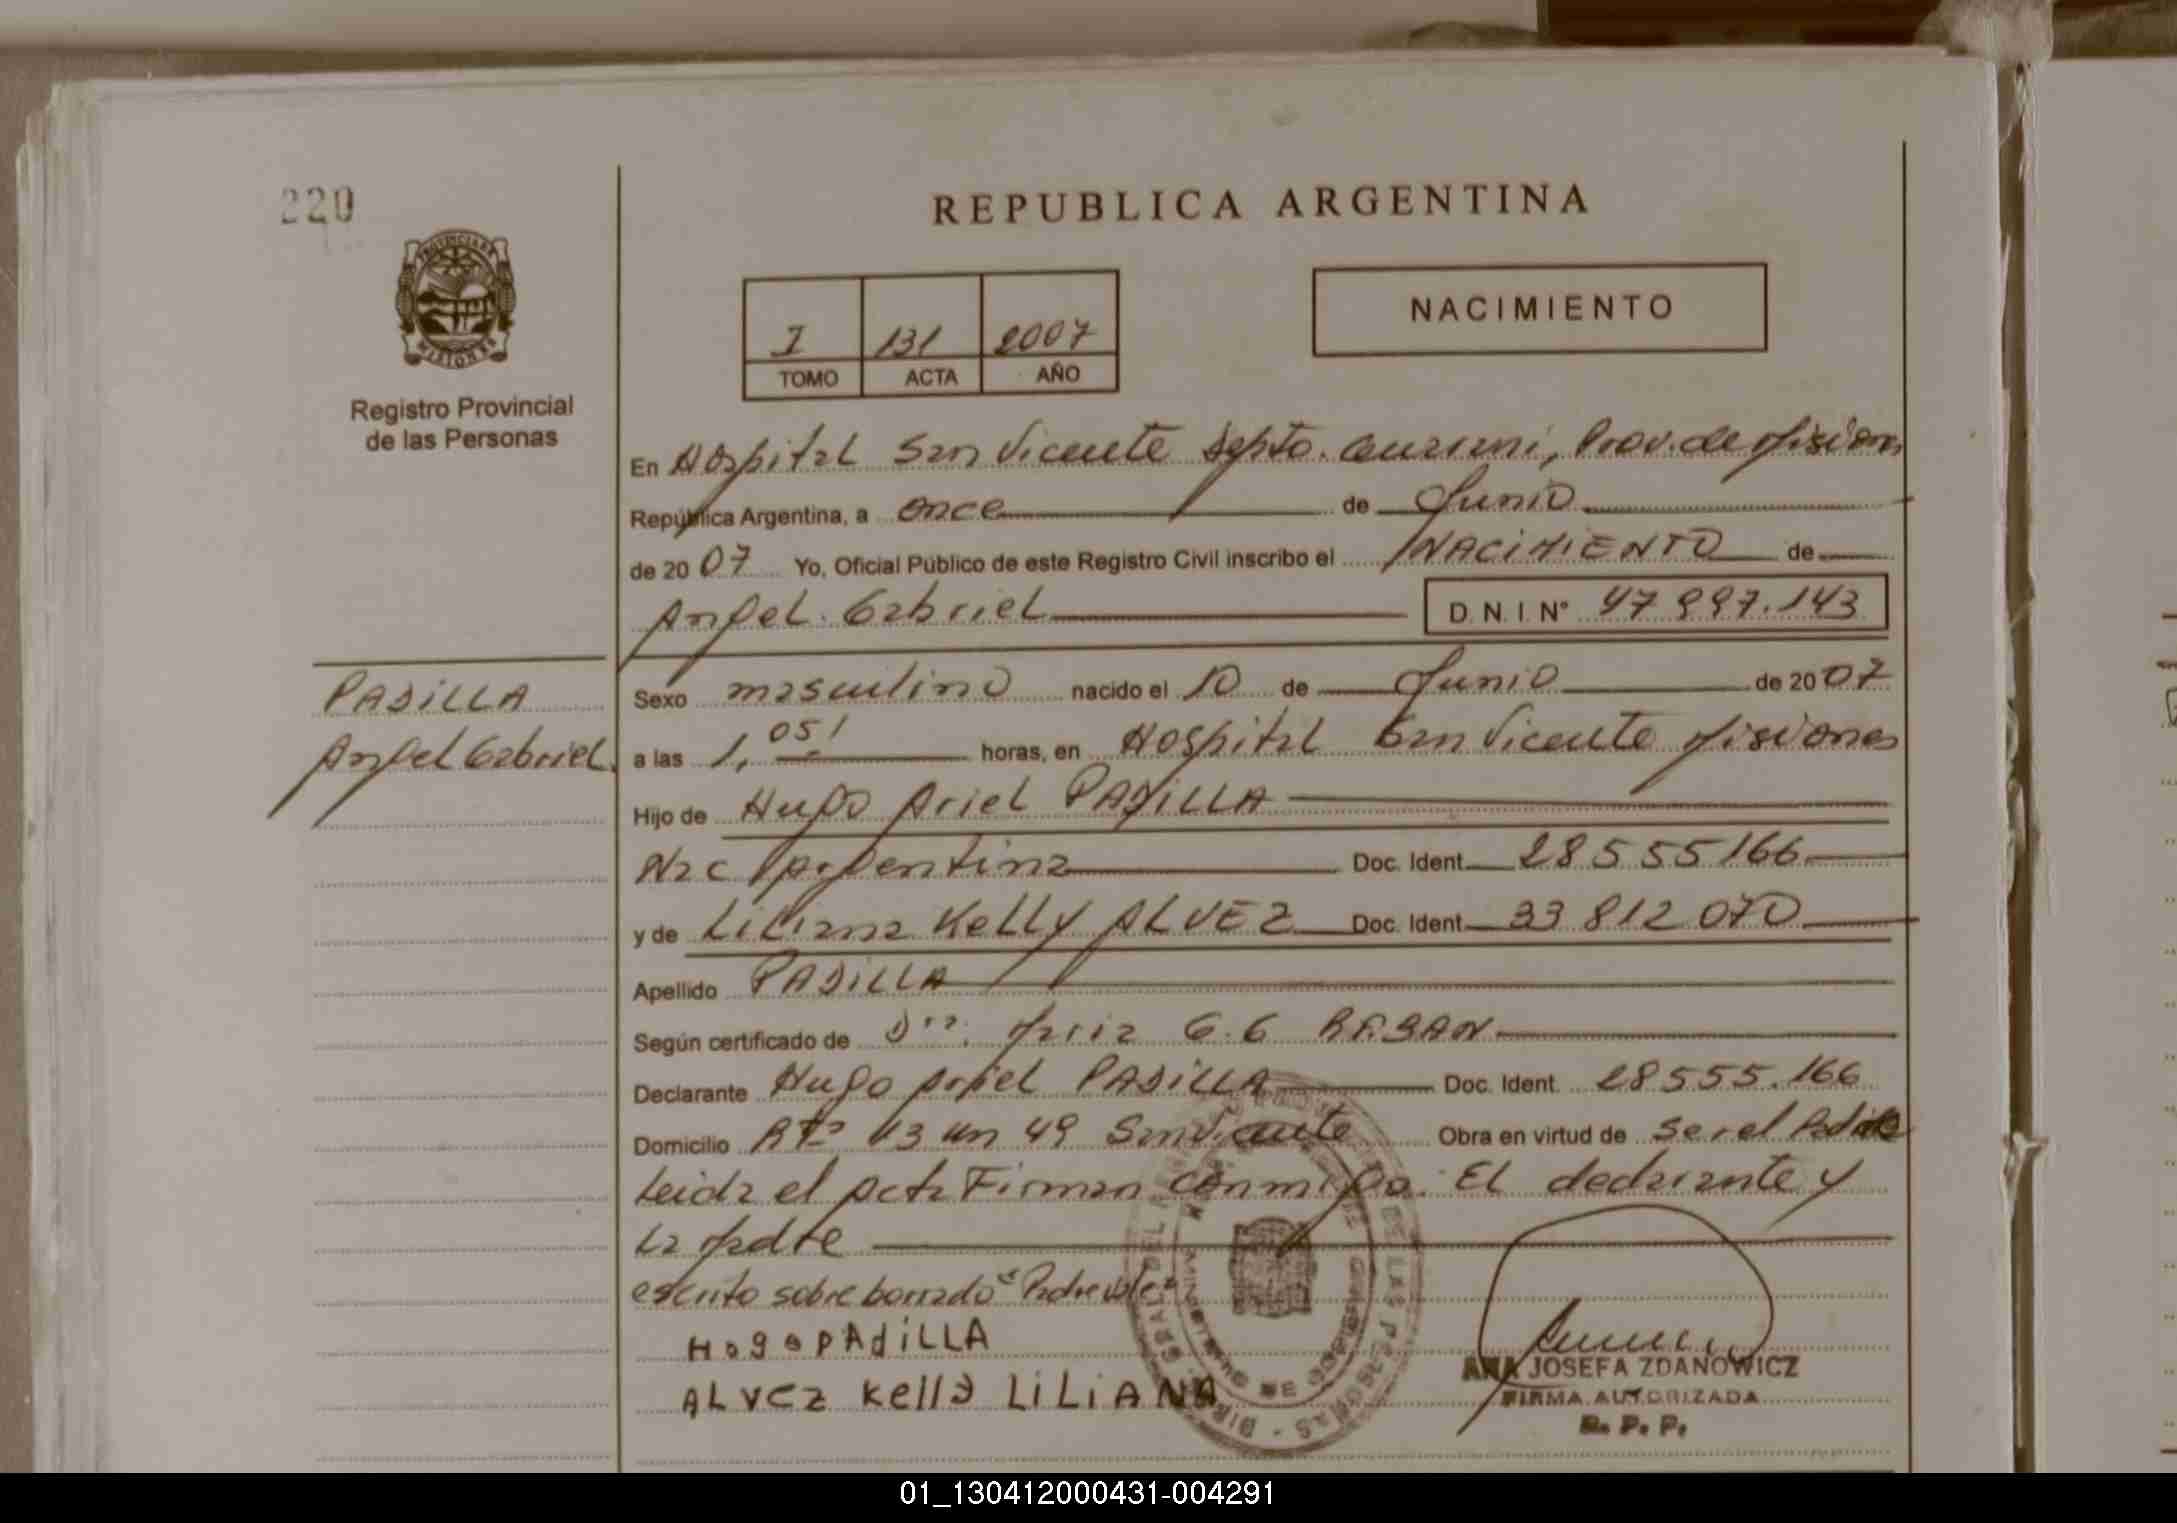 220
REPUBLICA ARGENTINA
NACIMIENTO
I 131 2007
TOMO ACTA AÑO
PROVINCIA DE
MISIONES
Registro Provincial
de las Personas
En Hospital San Vicente Depto. Guarani, Prov. de Misiones
República Argentina, a once de Junio
de 2007 Yo, Oficial Público de este Registro Civil inscribo el NACIMIENTO de
Angel Gabriel D. N. I. N° 47997.143
PADILLA
Angel Gabriel.
Sexo masculino nacido el 10 de Junio de 2007
a las 1,05' horas, en Hospital San Vicente Misiones
Hijo de Hugo Ariel PADILLA
Nac Argentina Doc. Ident. 28555166
y de Liliana Kelly ALVEZ Doc. Ident. 33812070
Apellido PADILLA
Según certificado de Dra. Maria G. G
Declarante Hugo Ariel PADILLA Doc. Ident. 28555.166
Domicilio Rta 13 km 49 San Vicente Obra en virtud de ser el Padre
Leida el acta Firman conmigo. El declarante y
La Madre
escrito sobre borrado "Padre vale"
HogoPAdiLLA
ALvez Kelly LiLiANA
ANA JOSEFA ZDANOWICZ
FIRMA AUTORIZADA
R. P. P.
01_130412000431-004291